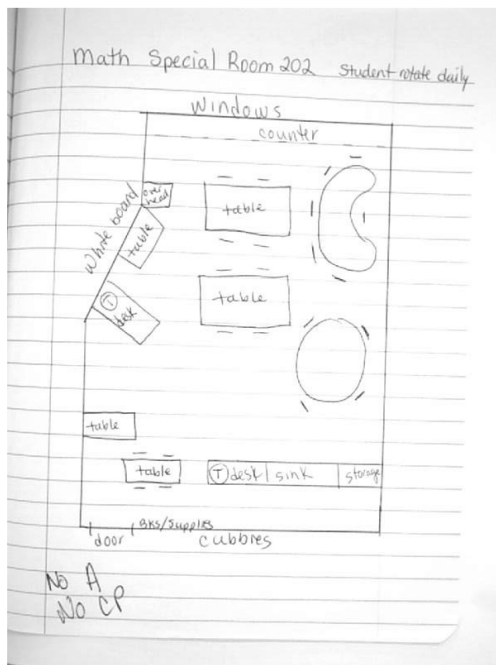 Math Special Room 202 Student rotate daily
Windows
counter
over head
White board
table
table
T desk
table
table
table
T desk
sink
storage
BKS/Supplies
door
cubbies
No A
No CP